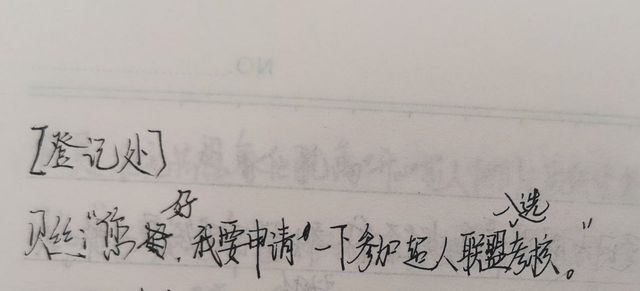 [登记处]
贝丝:“你好,我要申请一下参加超人联盟入选考核。”